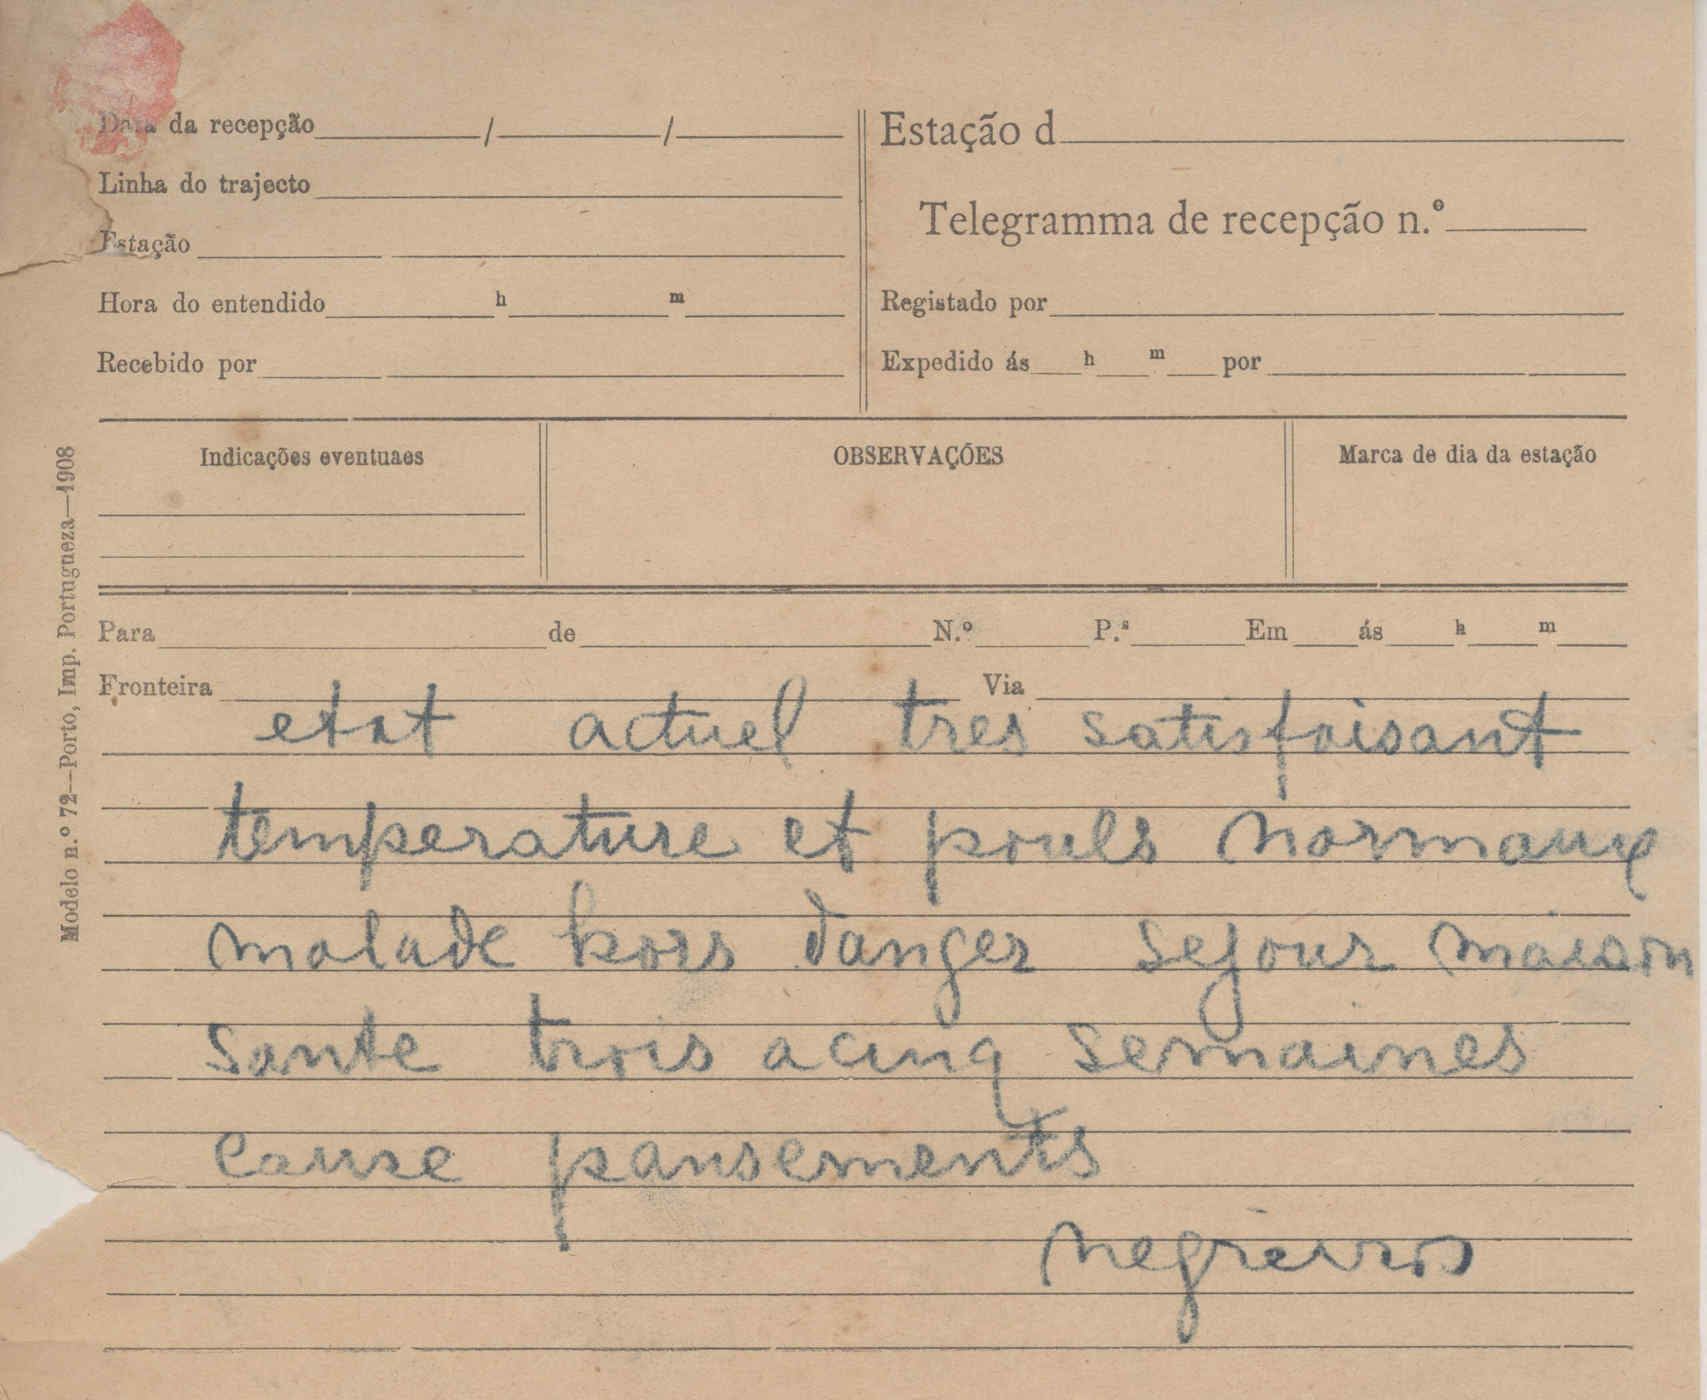 Data da recepção / /
Linha do trajecto
Estação
Hora do entendido h m
Recebido por
Estação d
Telegramma de recepção n.º
Registado por
Expedido ás h m por
Indicações eventuaes
OBSERVAÇÕES
Marca de dia da estação
Para de N.º P.ˢ Em ás h m
Fronteira Via
etat actuel tres satisfaisant
temperature et pouls normaux
malade hors danger sejour maison
sante trois a cinq semaines
cause pansements
negreiros
Modelo n.º 72—Porto, Imp. Portugueza—1908